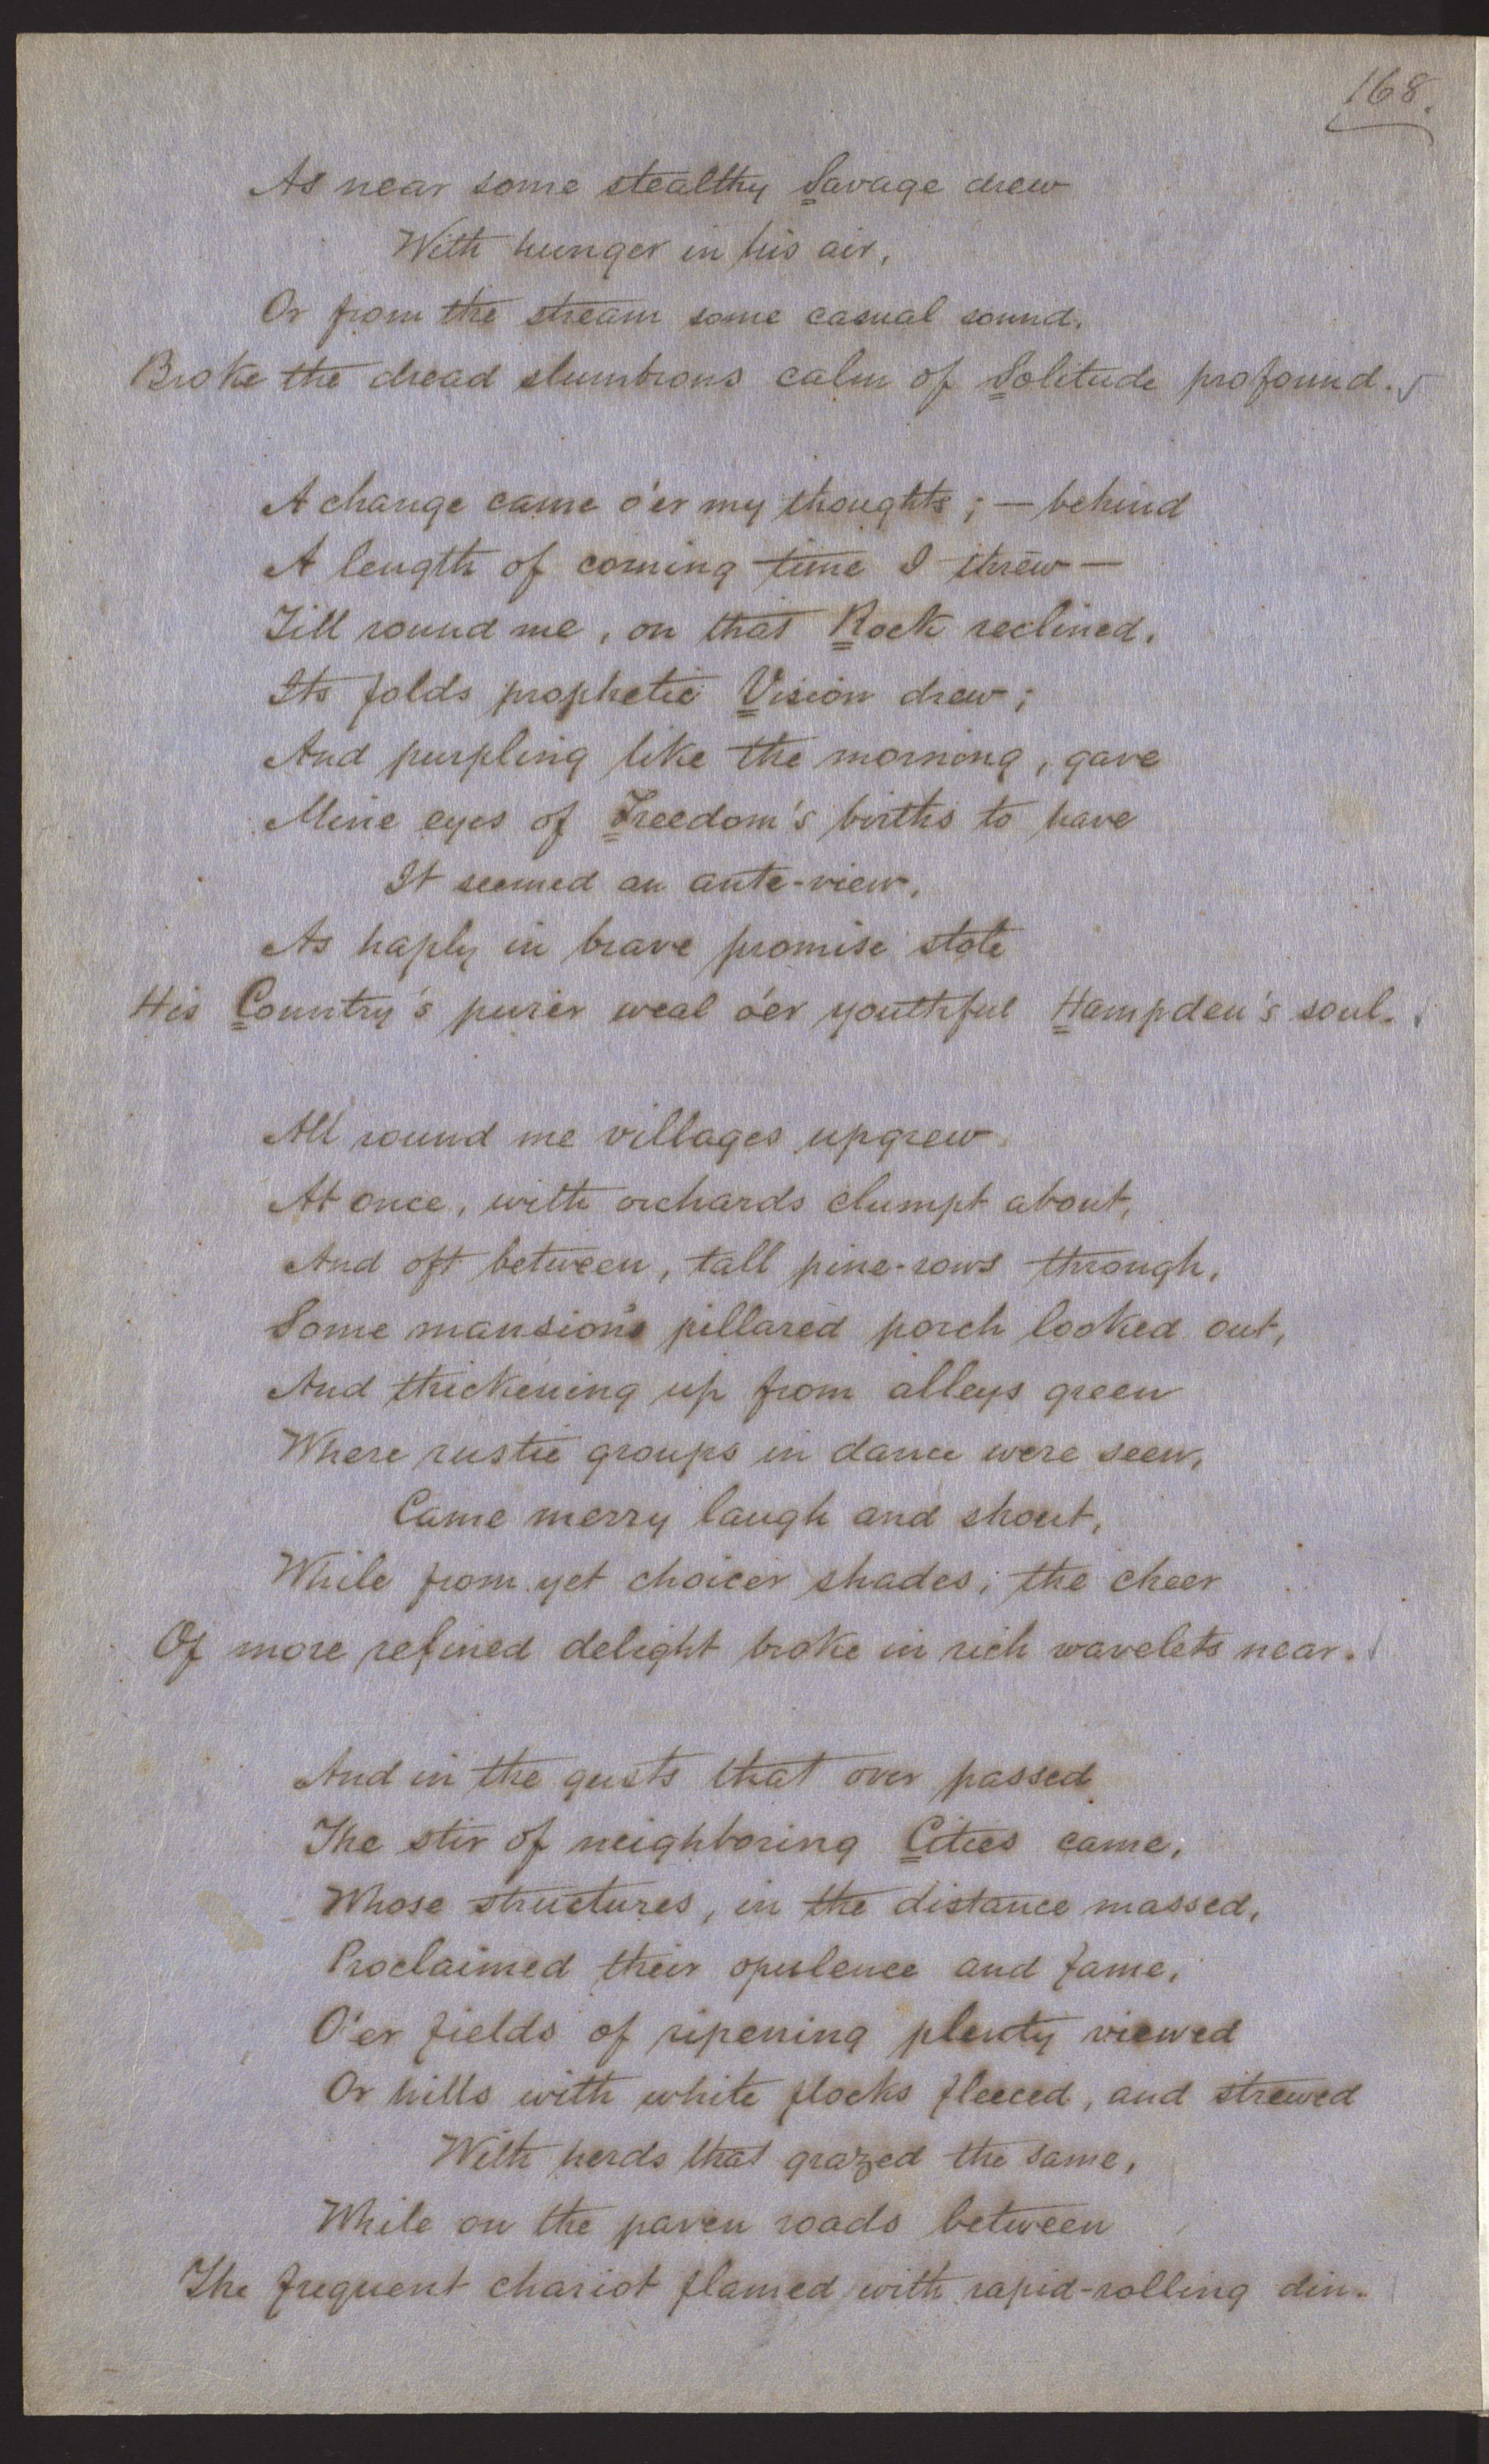 168.
As near some stealthy Savage drew
With hunger in his air,
Or from the stream some casual sound,
Broke the dread slumbrous calm of Solitude profound.
A change came o'er my thoughts; — behind
A length of coming time I threw —
Till round me, on that Rock reclined,
Its folds prophetic Vision drew;
And purpling like the morning, gave
Mine eyes of Freedom's births to have
It seemed an ante-view,
As haply in brave promise stole
His Country's purer weal o'er youthful Hampden's soul.
All round me villages upgrew
At once, with orchards clumpt about,
And oft between, tall pine-rows through,
Some mansion's pillared porch looked out,
And thickening up from alleys green
Where rustic groups in dance were seen,
Came merry laugh and shout,
While from yet choicer shades, the cheer
Of more refined delight broke in rich wavelets near.
And in the gusts that over passed
The stir of neighboring Cities came,
Whose structures, in the distance massed,
Proclaimed their opulence and fame,
O'er fields of ripening plenty viewed
Or hills with white flocks fleeced, and strewed
With herds that grazed the same,
While on the paven roads between
The frequent chariot flamed with rapid-rolling din.